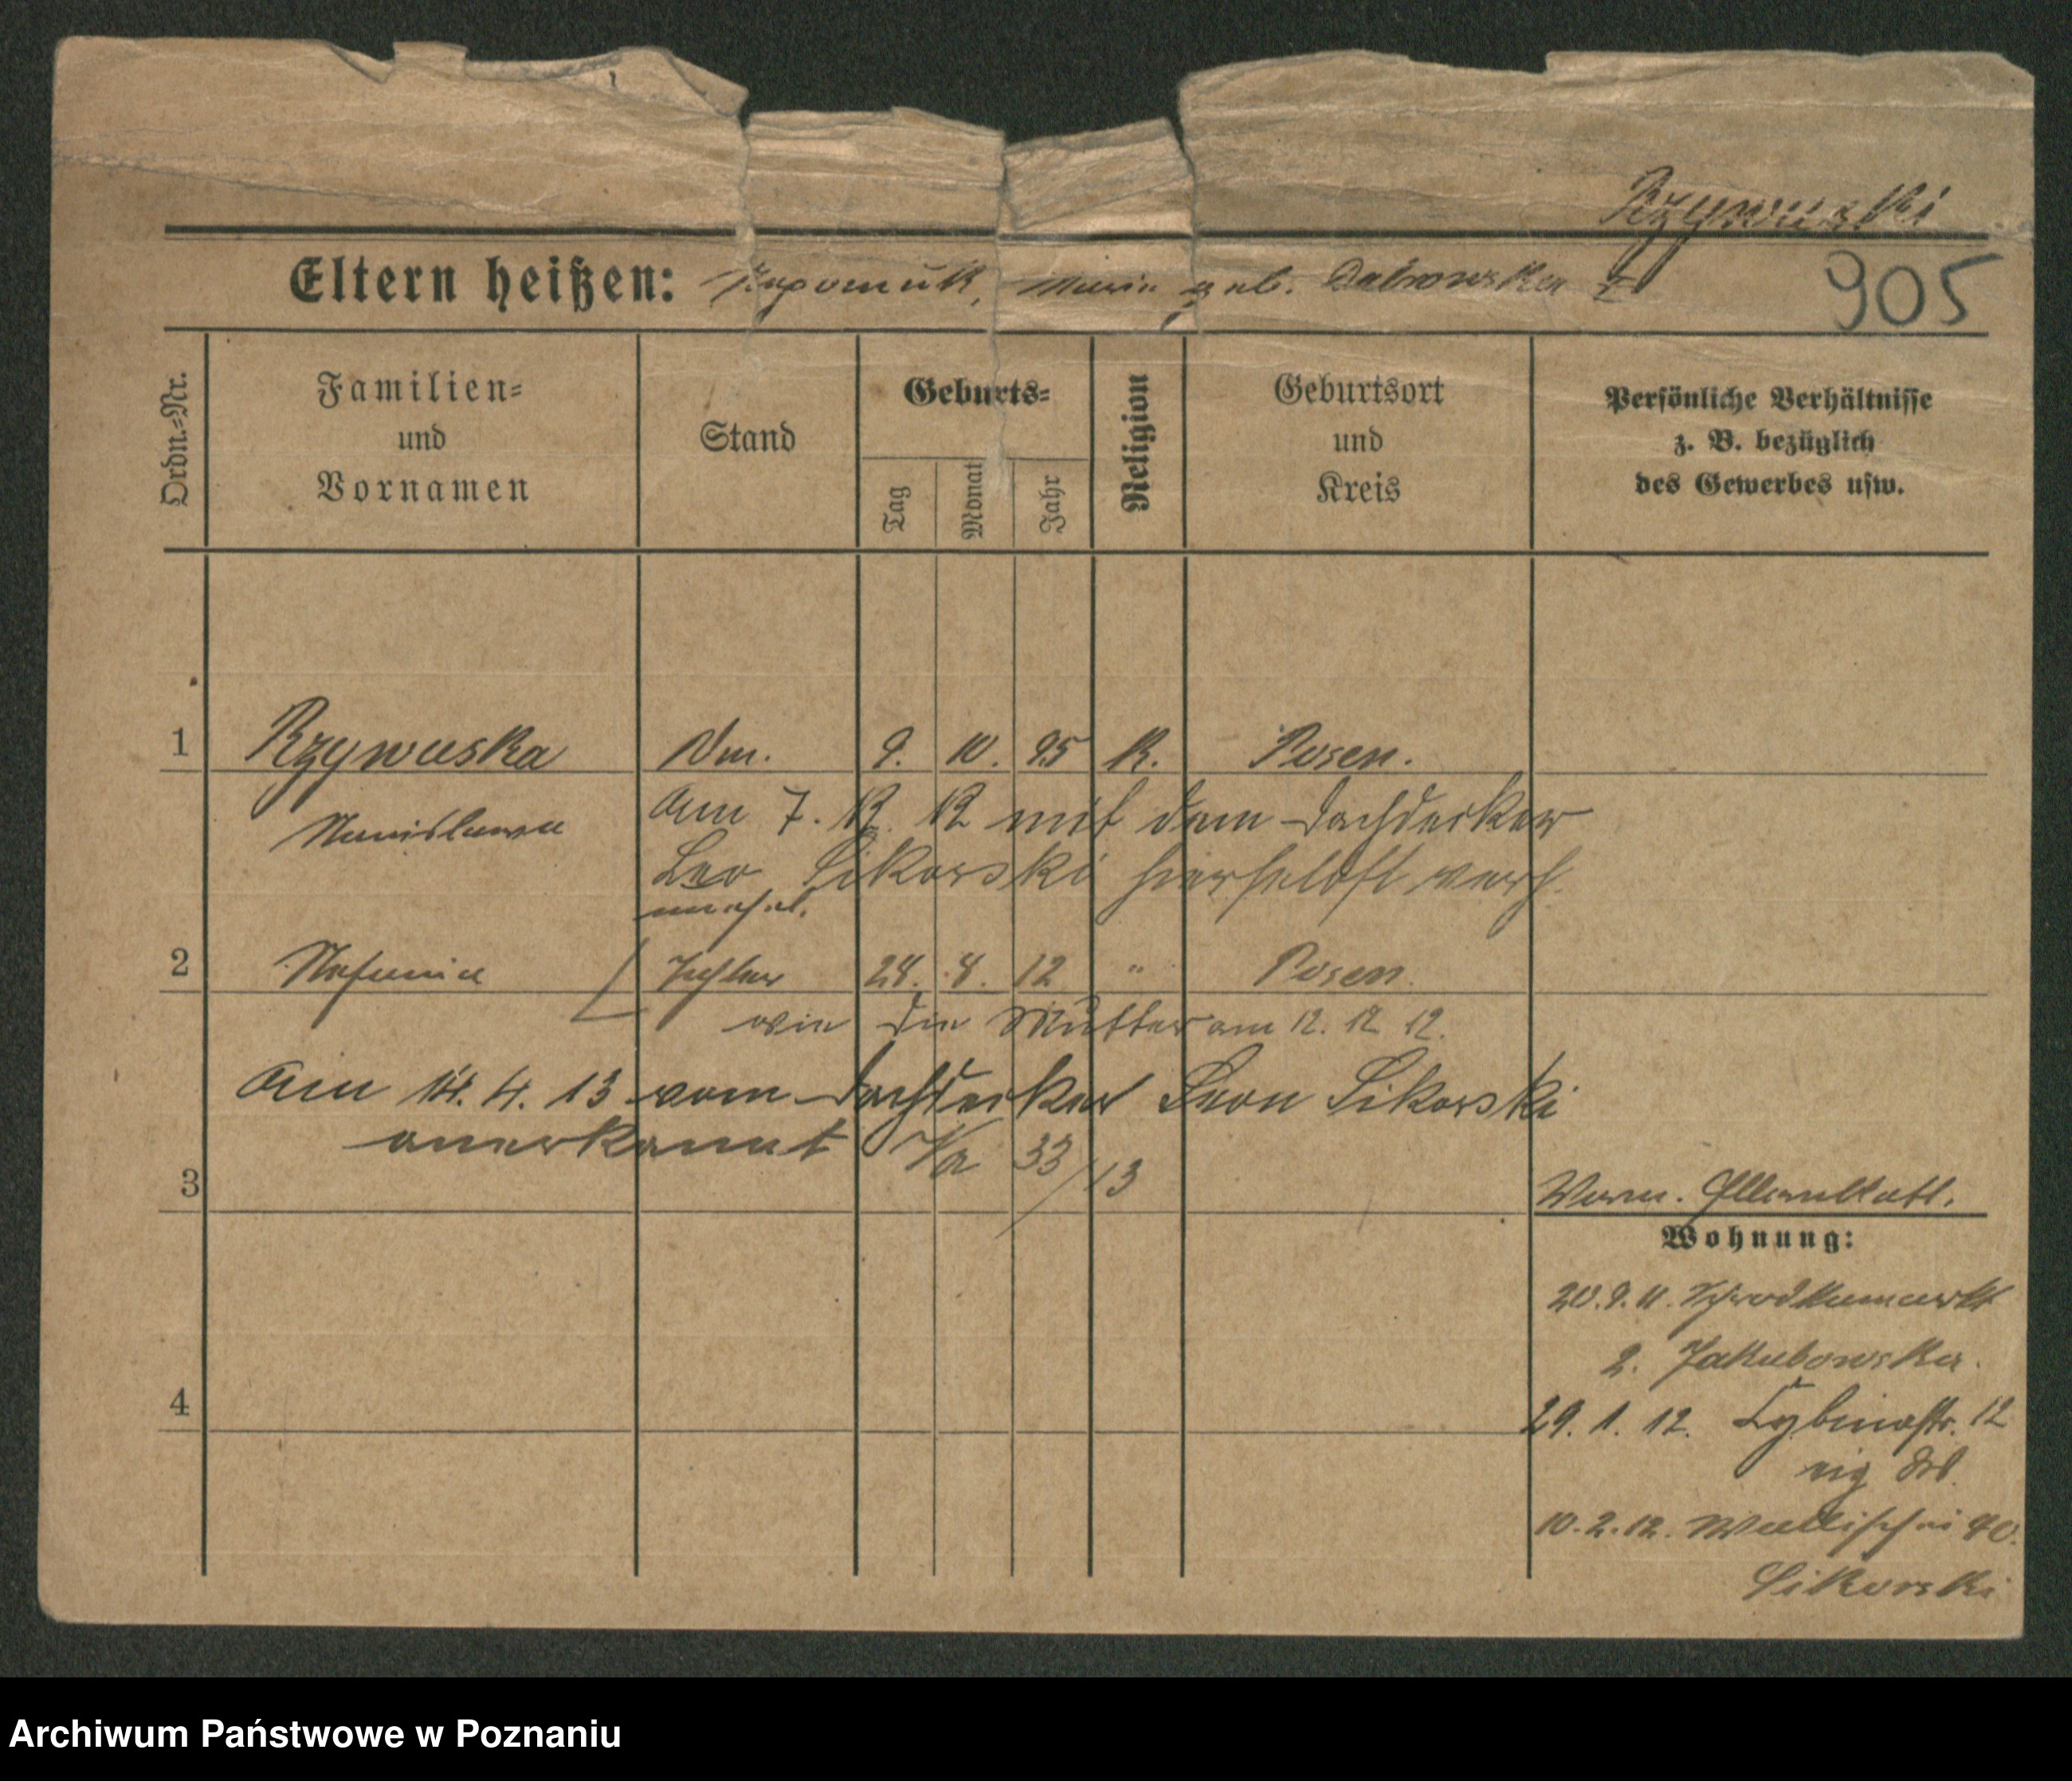 Rzywuski
Eltern heißen: Nepomuk, Maria geb. Dabrowska
905
Ordn.=Nr.
Familien=
und
Vornamen
Stand
Geburts=
Tag
Monat
Jahr
Religion
Geburtsort
und
Kreis
Persönliche Verhältnisse
z. B. bezüglich
des Gewerbes usw.
1 Rzywuska 9. 10. 95 K. Posen.
Stanislawa Am 7. 12. 12 mit dem Dachdecker
Leo Sikorski hierselbst verh.
unehel.
2 Stefania Tochter 28. 8. 12 " Posen.
wie die Mutter am 12. 12 12.
Am 14. 4. 13 vom Dachdecker Leon Sikorski
anerkannt 33/13
3
Wohnung:
20.9.11.
2. Jakubowska.
4
29. 1. 12. Cybinastr. 12
10.2.12. Wallischei
Sikorski
Archiwum Państwowe w Poznaniu